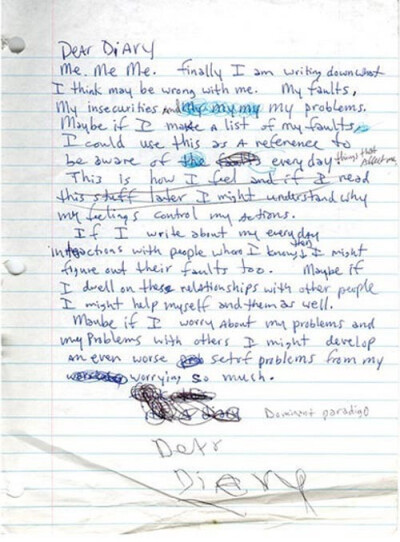 Dear Diary
Me. Me Me. Finally I am writing down what
I think may be wrong with me. My faults,
My insecurities and my my my my problems.
Maybe if I make a list of my faults,
I could use this as a reference to
be aware of the faults every day things that affect me
This is how I feel and if I read
this stuff later I might understand why
my feelings control my actions.
If I write about my everyday
interactions with people whom I know, then I might
figure out their faults too. Maybe if
I dwell on these relationships with other people
I might help myself and them as well.
Maybe if I worry about my problems and
my problems with others I might develop
an even worse set of problems from my
worrying so mush.
Dominant paradigo
Dear
Diary